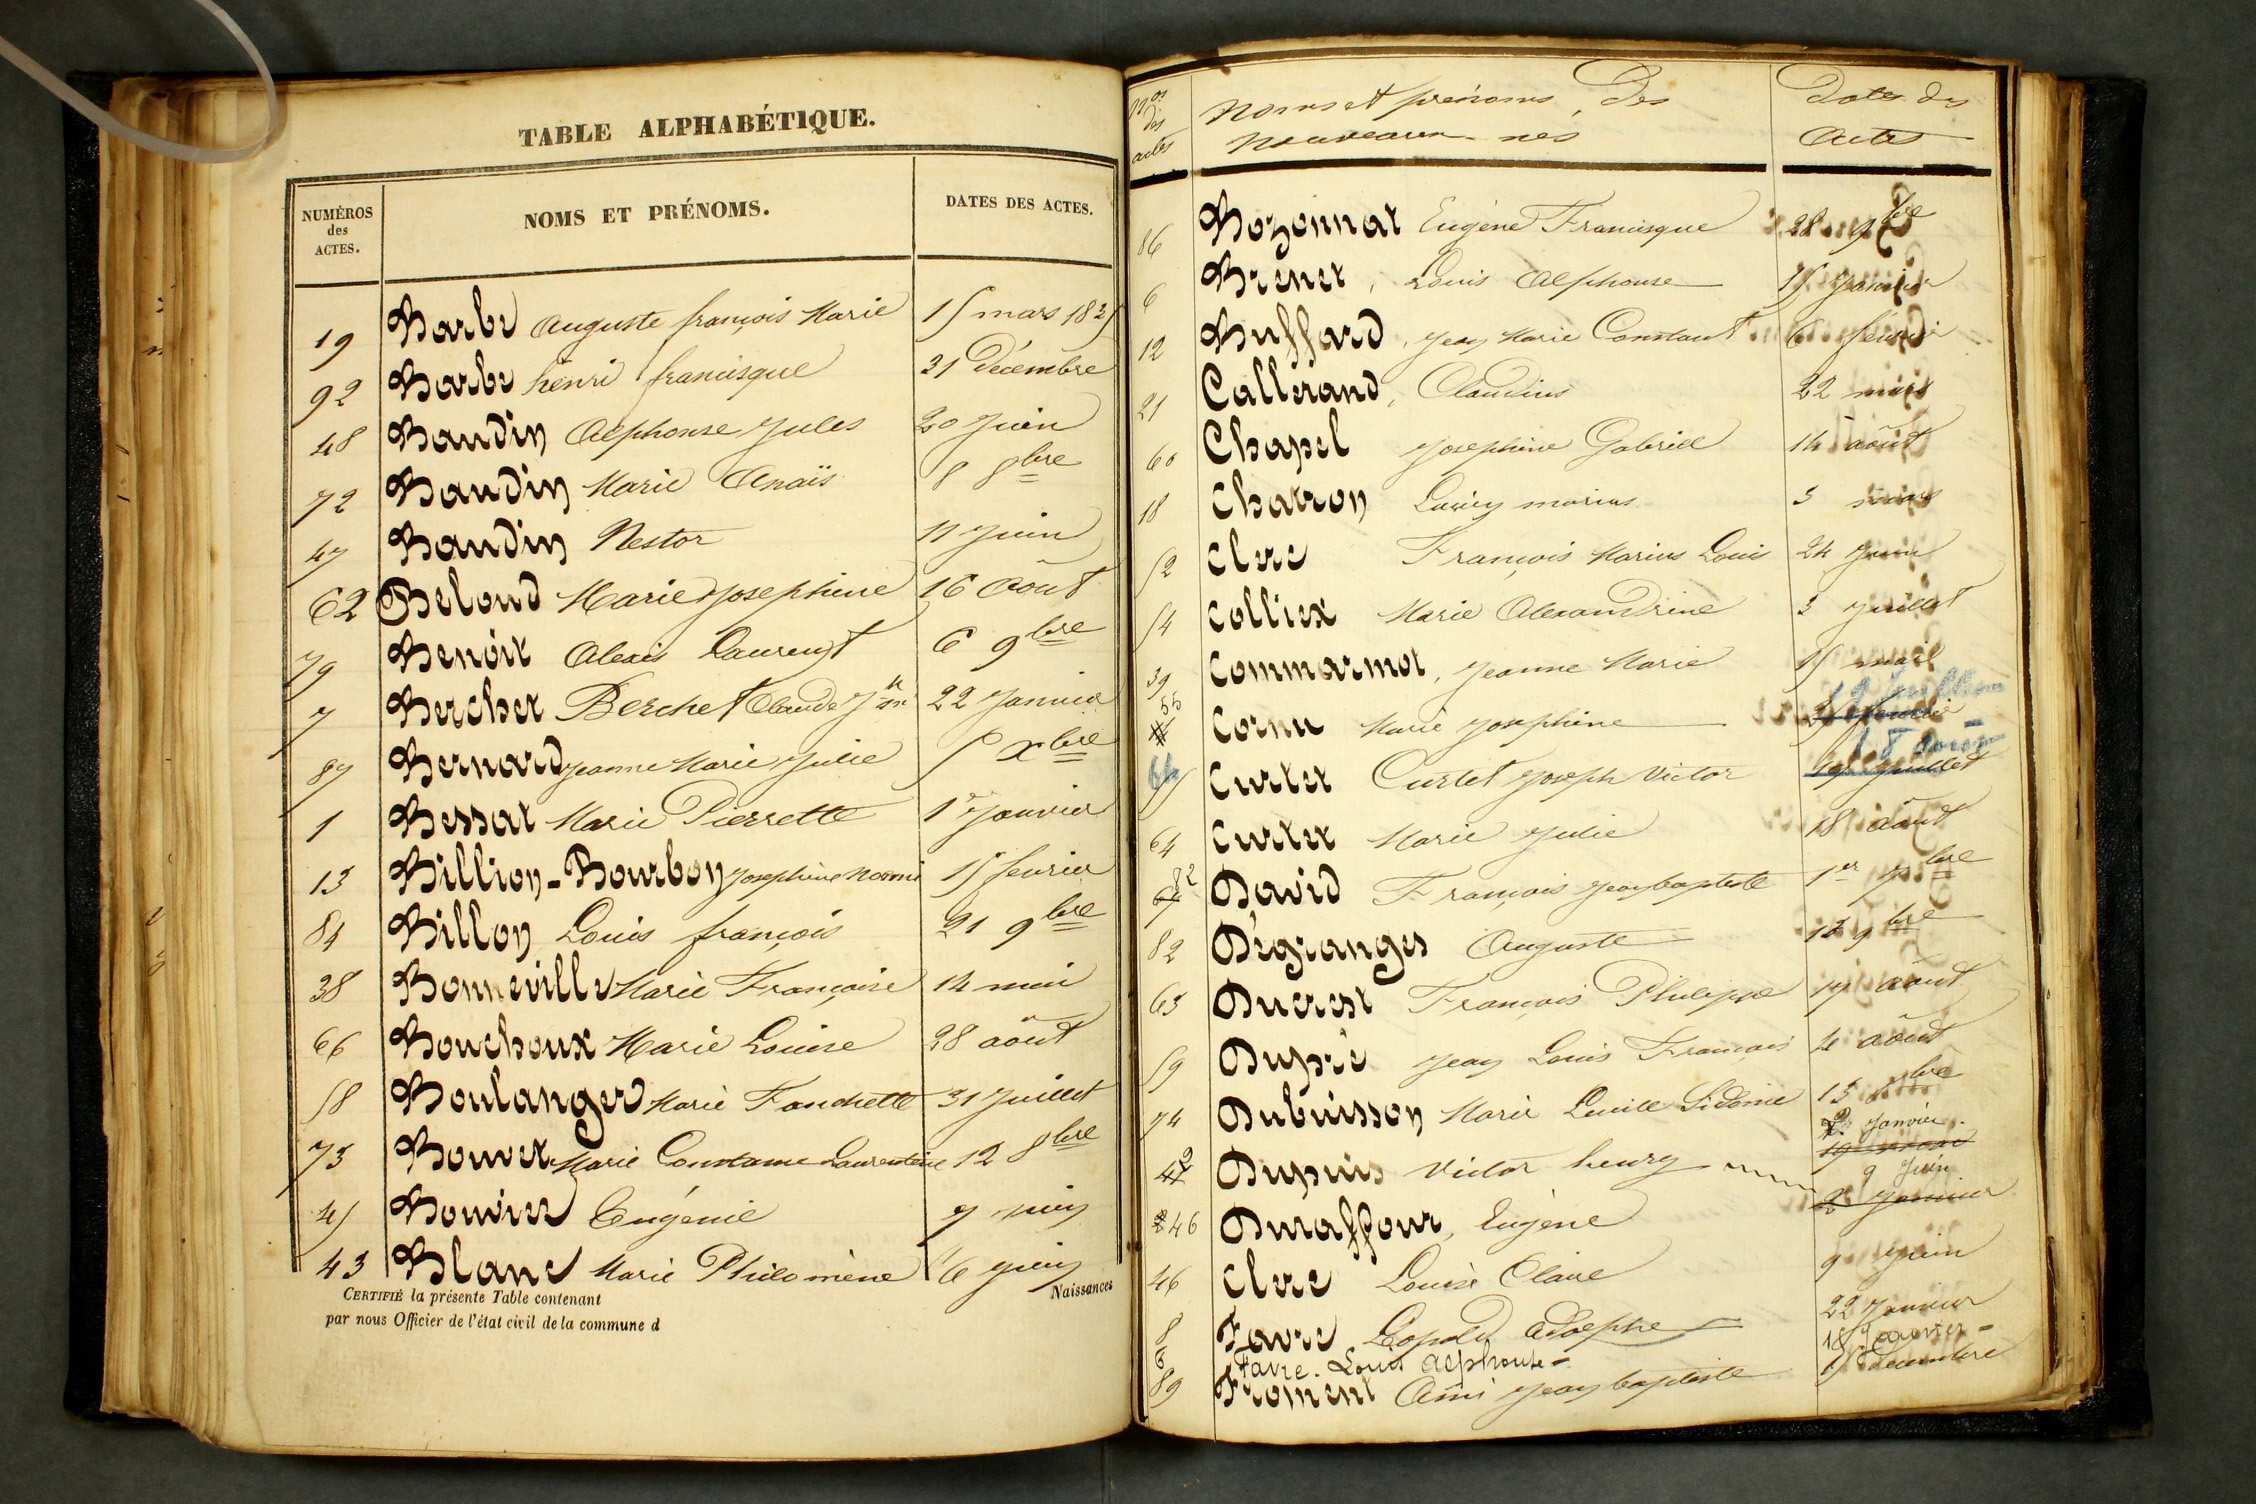 TABLE ALPHABÉTIQUE.
NUMÉROS des ACTES. NOMS ET PRÉNOMS. DATES DES ACTES.
19 Barbe Auguste françois Marie 15 mars 18
92 Barbe henri francisque 31 Décembre
48 Baudin Alphonse Jules 20 Juin
72 Baudin Marie Anaïs 8 8bre
47 Baudin Nestor 17 Juin
62 Beloud Marie Josephine 16 Août
79 Benoit Alexis Laurent 6 9bre
7 Berchet Berchet Claude 22 Janvier
87 Bernard Jeanne Marie Julie 5 Xbre
1 Bessat Marie Pierrette 1er Janvier
13 Billion-Bourbon Josephine Noemi 15 fevrier
84 Billon Louis françois 21 9bre
38 Bonneville Marie Françoise 14 mai
66 Bouchoux Marie Louise 28 août
58 Boulanger Marie Fanchette 31 Juillet
73 Bouvet Marie Constance Laurentine 12 8bre
45 Bouvier Eugénie 7 juin
43 Blanc Marie Philomène 6 juin
CERTIFIÉ la présente Table contenant Naissances
par nous Officier de l'état civil de la commune d
Nos des actes Noms et prénoms des Nouveaux nés Dates des Actes
86 Bozonnat Eugène Francisque 28 9bre
6 Brenet, Louis Alphonse 15 Janvier
12 Buffard, Jean Marie Constant 6 février
21 Callerand, Claudius 22 mars
60 Chapel Josephine Gabriel 14 août
18 Chatron marius 3 mars
52 Clerc François Marius Louis 24 Juin
54 Colliex Marie Alexandrine 3 Juillet
39 Commarmot, Jeanne Marie 15 mai
55 Cornu Marie Josephine
Curtet Curtet Joseph Victor 18 août
19 Juillet
64 Curtet Marie Julie 18 août
David François Jean baptiste 1er bre
82 Dégranges Auguste 13 9bre
63 Ducrest François Philippe 17 août
59 Dupré Jean Louis François 4 août
74 Dubuisson Marie Lucile Sidonie 13 bre
2 Janvier.
Dupuis Victor henry
9 Juin
46 Duraffour, Eugène 2 Janvier
46 Clerc Louise Claire 9 Juin
8 Favre Léopold Adolphe 22 Janvier
6 Favre. Louis Alphonse = 15 Janvier =
89 Froment Aimé Jean baptiste décembre